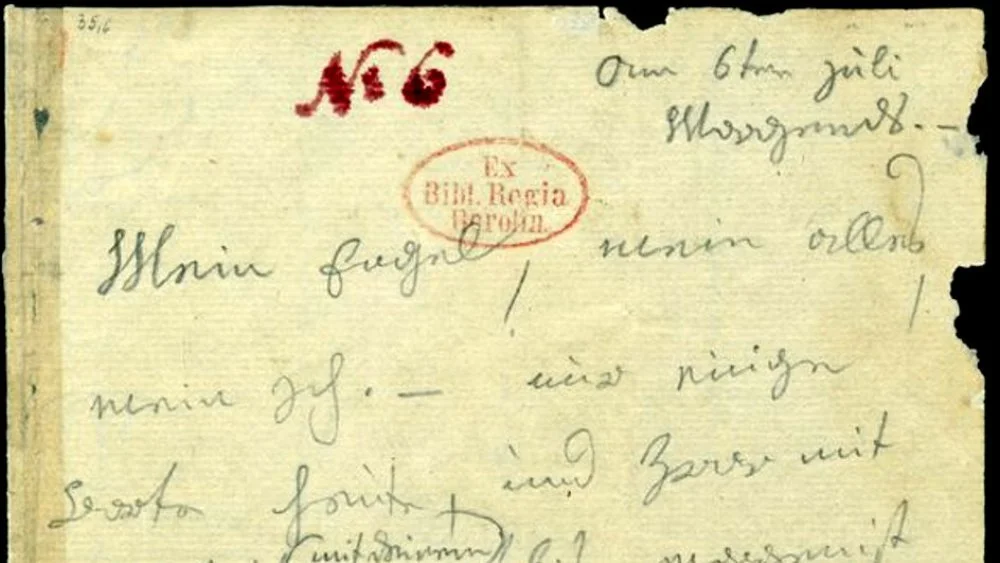 35,6
№ 6
am 6ten juli
Morgends. –
Ex
Bibl. Regia
Berolin.
Mein Engel, mein alles,
mein Ich. — nur einige
Worte heute, und zwar mit
(mit deinem) bis morgen ist